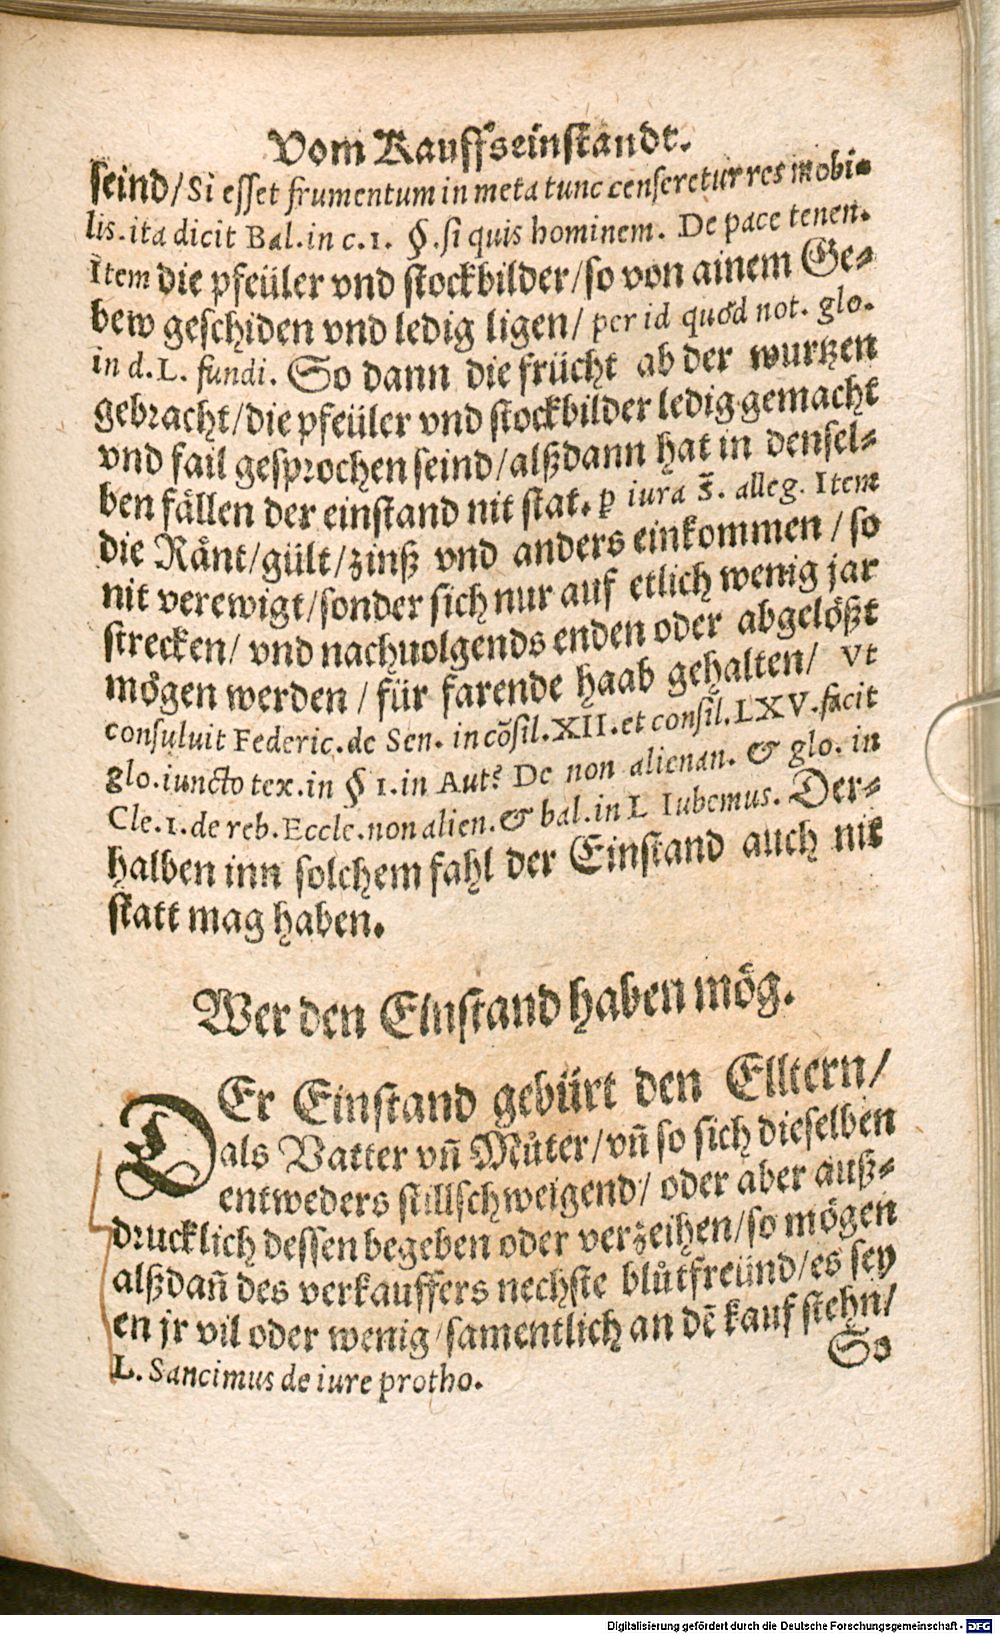 Vom Kauffseinstandt.
seind/Si esset frumentum in meta tunc censeretur res mobi⸗
lis. ita dicit Bal. in c. 1. §. si quis hominem. De pace tenen.
Item die pfeüler vnd stockbilder/so von ainem Ge⸗
bew geschiden vnd ledig ligen/ per id quod not. glo.
in d. L. fundi. So dann die frücht ab der wurtzen
gebracht/die pfeüler vnd stockbilder ledig gemacht
vnd fail gesprochen seind/alßdann hat in densel⸗
ben fällen der einstand nit stat. ꝑ iura s̄. alleg. Item
die Ränt/gült/zinß vnd anders einkommen /so
nit verewigt/sonder sich nur auf etlich wenig jar
strecken/ vnd nachuolgends enden oder abgelößt
mögen werden / für farende haab gehalten/ vt
consuluit Federic. de Sen. in cõsil. XII. et consil. LXV. facit
glo. iuncto tex. in § 1. in Aut. De non alienan. & glo. in
Cle. 1. de reb. Eccle. non alien. & bal. in L Iubemus. Der⸗
halben inn solchem fahl der Einstand auch nit
statt mag haben.
Wer den Einstand haben mög.
DEr Einstand gebürt den Elltern/
als Vatter vñ Můter/vñ so sich dieselben
entweders stillschweigend/ oder aber auß⸗
drucklich dessen begeben oder verzeihen/so mögen
alßdañ des verkauffers nechste blůtfreünd/es sey
en jr vil oder wenig/samentlich an dē kauf stehn/
L. Sancimus de iure protho.
So
Digitalisierung gefördert durch die Deutsche Forschungsgemeinschaft - DFG